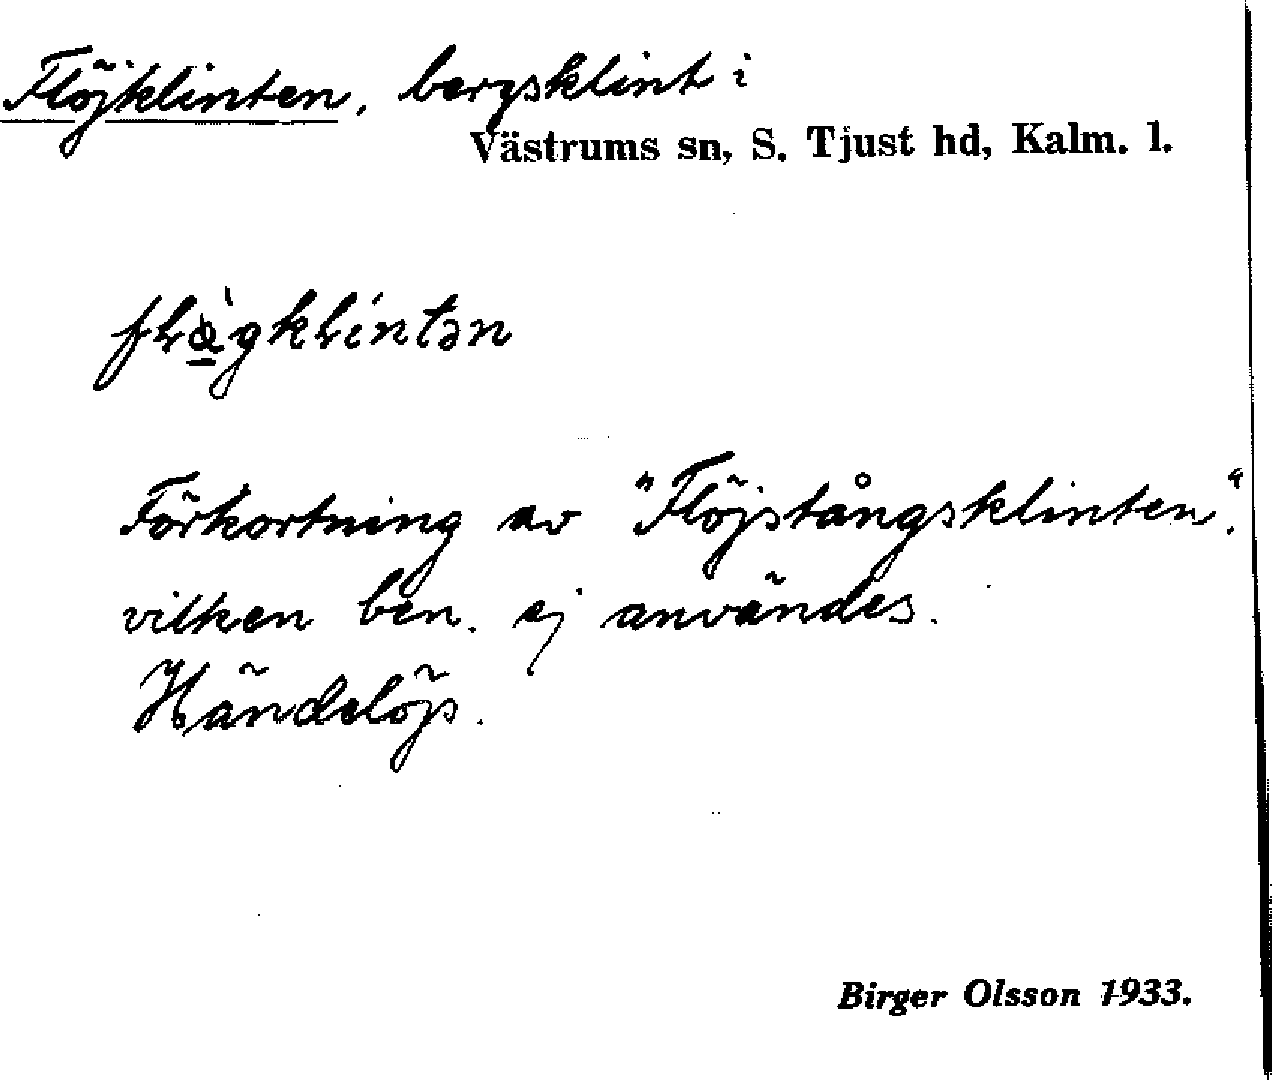 Flöjklinten, bergsklint i
Västrums sn, S. Tjust hd, Kalm. l.
Förkortning av "Flöjstångsklinten".
vilken ben. ej användes.
Händelöp.
Birger Olsson 1933.